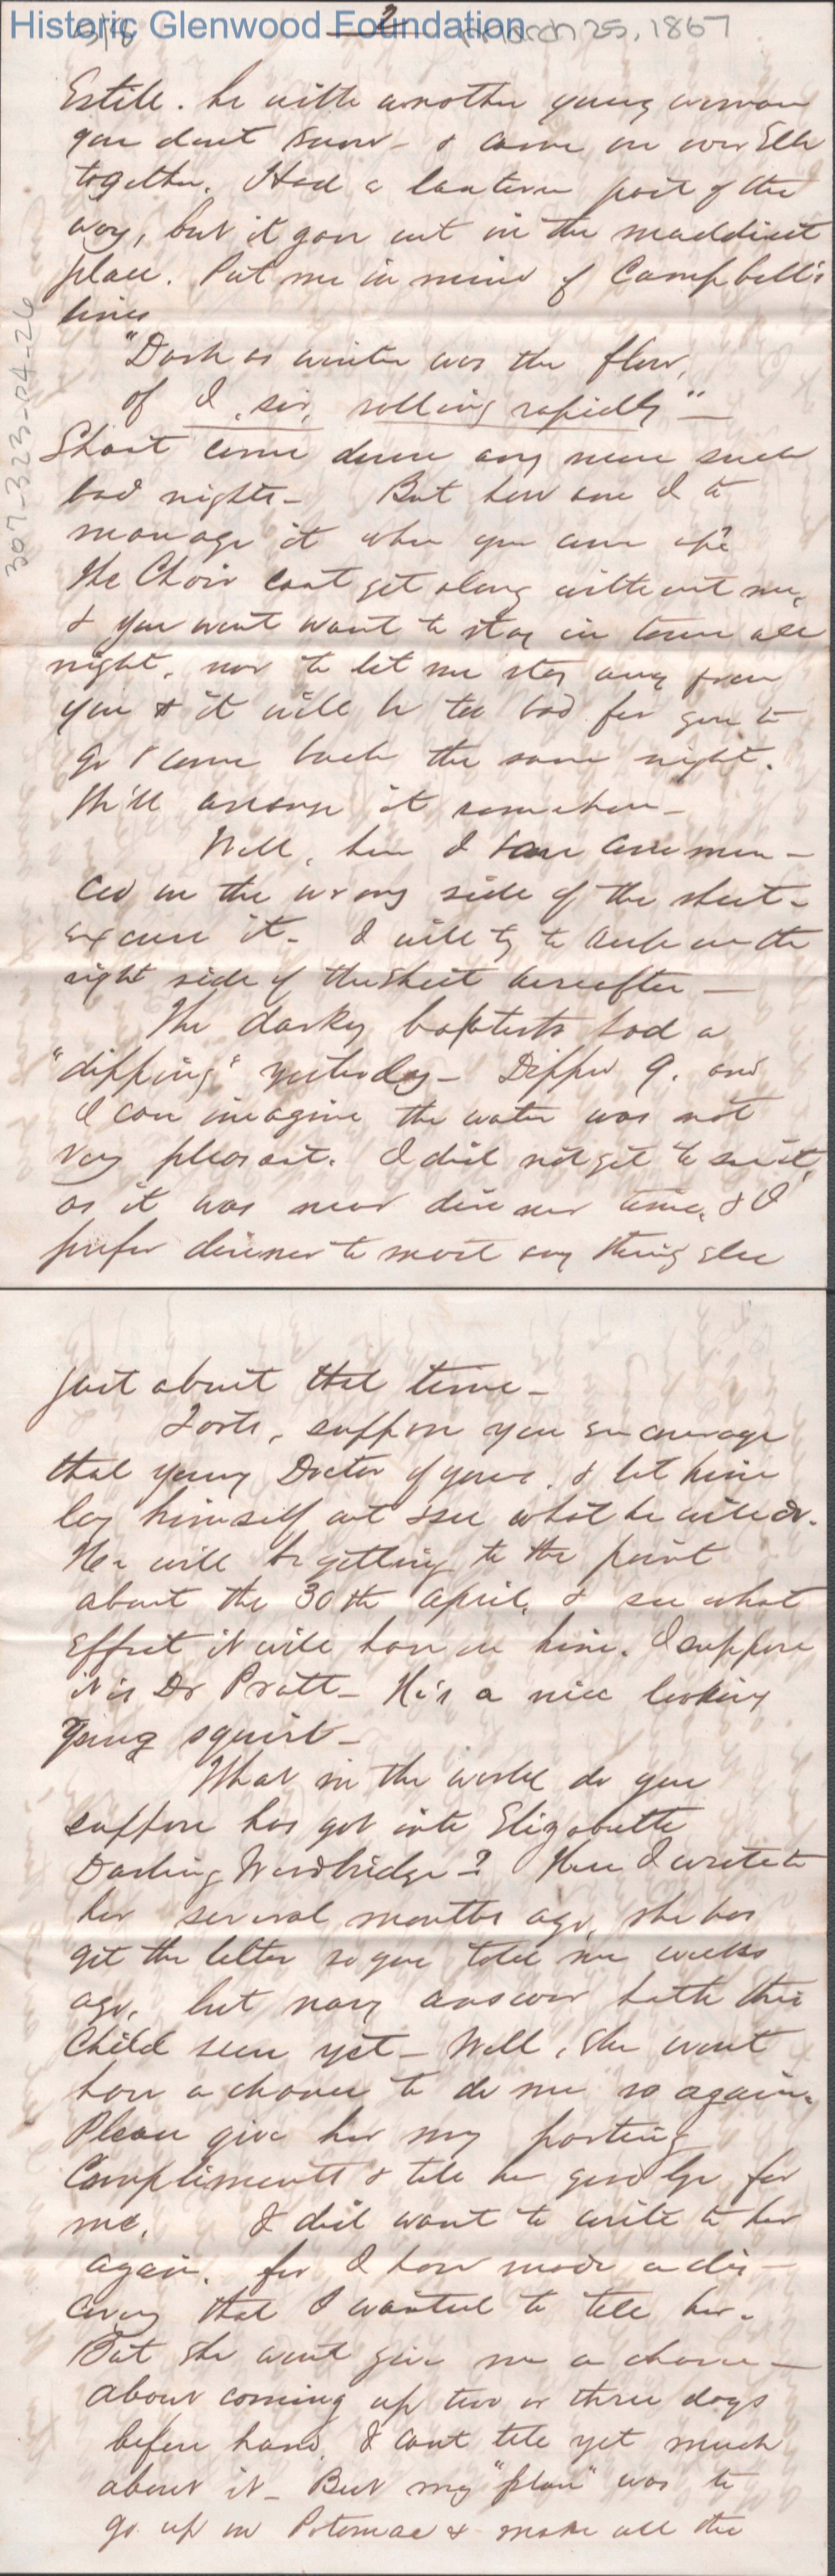 Historic Glenwood Foundation
2
3/8
March 25, 1867
307-323-04-26
Estill. he with another young woman
you dont know - & came on over Elk
together. Had a lantern part of the
way, but it gave out in the muddiest
place. Put me in mind of Campbell's
lines
"Dark as winter was the flow,
of I, sir, rolling rapidly" -
Shant come down any more such
bad nights - But how am I to
manage it when you come up?
The Choir cant get along without me,
& you wont want to stay in town all
night, nor to let me stay away from
you & it will be too bad for you to
go & come back the same night.
We'll arrange it somehow -
Well, here I have commen-
ced on the wrong side of the sheet -
excuse it - I will try to keep on the
right side of the sheet hereafter -
The darkey baptists had a
"dipping" yesterday - Dipped 9. and
I can imagine the water was not
very pleasant. I did not get to see it,
as it was near dinner time, & I
prefer dinner to most any thing else
just about that time -
suppose you encourage
that young Doctor of yours, & let him
lay himself out & see what he will do.
He will be getting to the point
about the 30th April, & see what
effect it will have on him. I suppose
it is Dr Pratt - He's a nice looking
young squirt -
What in the world do you
suppose has got into Elizabeth
Darling Woodbridge? Here I wrote to
her several months ago, she has
got the letter so you told me weeks
ago, but nary answer hath this
Child seen yet - Well, she wont
have a chance to do me so again.
Please give her my parting
Compliments & tell her good bye for
me. I did want to write to her
again, for I have made a dis-
covery that I wanted to tell her -
But she wont give me a chance -
about coming up two or three days
before hand, I cant tell yet much
about it - But my "plan" was to
go up on Potomac & make all the